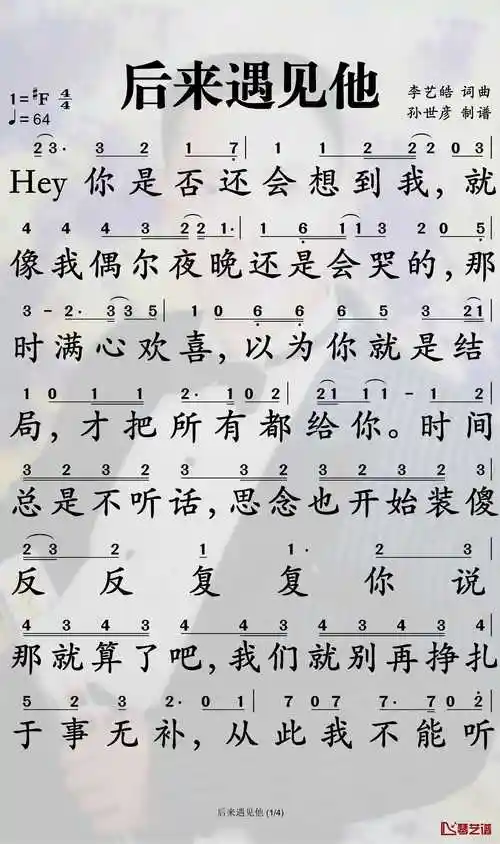 后来遇见他
李艺皓 词曲
孙世彦 制谱
1=#F 4/4
♩=64
2 3· 3 2 1 7 | 1 1 2 2 2 0 3 |
Hey 你是否还会想到我,就
4 4 4 3 2 2 1· | 1 6 1 1 3 2 0 5 |
像我偶尔夜晚还是会哭的,那
3 - 2· 3 3 5 | 1 0 6 6 5 3 2 1 |
时满心欢喜,以为你就是结
1 0 1 1 2· 1 0 2 | 2 1 1 1 - 1 2 |
局,才把所有都给你。时间
3 2 3 2 3 3 2 3 2 3 2 |
总是不听话,思念也开始装傻
2 3 2 1 1· 2 3 |
反反复复你说
4 3 4 3 4 4 3 4 3 4 3 |
那就算了吧,我们就别再挣扎
5 2 3 2· 0 1 | 7 0 7 7· 7 0 2 |
于事无补,从此我不能听
后来遇见他 (1/4)
琴艺谱